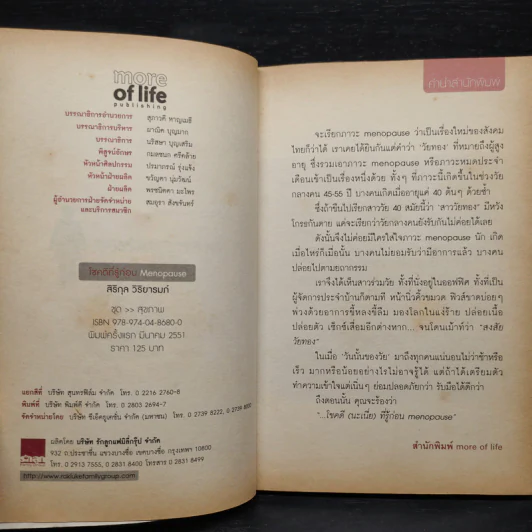 more
of life
publishing
บรรณาธิการอำนวยการ สุภาวดี หาญเมธี
บรรณาธิการบริหาร มาณิต บุญมาก
บรรณาธิการ นริสษา บุญเสริม
พิสูจน์อักษร กมลชนก ศรีคล้าย
หัวหน้าศิลปกรรม ปรมาภรณ์ รุ่งแจ้ง
หัวหน้าฝ่ายผลิต ขวัญตา นุ่มวัฒน์
ฝ่ายผลิต พรชนิดดา มะไพร
ผู้อำนวยการฝ่ายจัดจำหน่าย สมจุรา สังขจันทร์
และบริการสมาชิก
โชคดีที่รู้ก่อน Menopause
สิริกุล วิริยารมภ์
ชุด >> สุขภาพ
ISBN 978-974-04-8680-0
พิมพ์ครั้งแรก มีนาคม 2551
ราคา 125 บาท
แยกสีที่ บริษัท สุนทรฟิล์ม จำกัด โทร. 0 2216 2760-8
พิมพ์ที่ บริษัท พิมพ์ดี จำกัด โทร. 0 2803 2694-7
จัดจำหน่ายโดย บริษัท ซีเอ็ดยูเคชั่น จำกัด (มหาชน) โทร. 0 2739 8222, 0 2739
ผลิตโดย บริษัท รักลูกแฟมิลี่กรุ๊ป จำกัด
932 ถ.ประชาชื่น แขวงบางซื่อ เขตบางซื่อ กรุงเทพฯ 10800
โทร. 0 2913 7555, 0 2831 8400 โทรสาร 0 2831 8499
http://www.raklukefamilygroup.com
คำนำสำนักพิมพ์
จะเรียกภาวะ menopause ว่าเป็นเรื่องใหม่ของสังคม
ไทยก็ว่าได้ เราเคยได้ยินกันแต่คำว่า ‘วัยทอง’ ที่หมายถึงผู้สูง
อายุ ซึ่งรวมเอาภาวะ menopause หรือภาวะหมดประจำ
เดือนเข้าเป็นเรื่องหนึ่งด้วย ทั้งๆ ที่ภาวะนี้เกิดขึ้นในช่วงวัย
กลางคน 45-55 ปี บางคนเกิดเมื่ออายุแค่ 40 ต้นๆ ด้วยซ้ำ
ซึ่งถ้าขืนไปเรียกสาววัย 40 สมัยนี้ว่า ‘สาววัยทอง’ มีหวัง
โกรธกันตาย แต่จะเรียกว่าวัยกลางคนยังรับกันไม่ค่อยได้เลย
ดังนั้นจึงไม่ค่อยมีใครใส่ใจภาวะ menopause นัก เกิด
เมื่อไหร่ก็เมื่อนั้น บางคนไม่ยอมรับว่ามีอาการแล้ว บางคน
ปล่อยไปตามยถากรรม
เราจึงได้เห็นสาวร่วมวัย ทั้งที่นั่งอยู่ในออฟฟิศ ทั้งที่เป็น
ผู้จัดการประจำบ้านก็ตามที หน้านิ่วคิ้วขมวด ฟิวส์ขาดบ่อยๆ
พ่วงด้วยอาการขี้หลงขี้ลืม มองโลกในแง่ร้าย ปล่อยเนื้อ
ปล่อยตัว เซ็กซ์เสื่อมอีกต่างหาก... จนโดนเม้าท์ว่า “สงสัย
วัยทอง”
ในเมื่อ ‘วันนั้นของวัย’ มาถึงทุกคนแน่นอนไม่ว่าช้าหรือ
เร็ว มากหรือน้อยอย่างไรไม่อาจรู้ได้ แต่ถ้าได้เตรียมตัว
ทำความเข้าใจแต่เนิ่นๆ ย่อมปลอดภัยกว่า รับมือได้ดีกว่า
ถึงตอนนั้น คุณจะร้องว่า
“...โชคดี (นะเนี่ย) ที่รู้ก่อน menopause”
สำนักพิมพ์ more of life